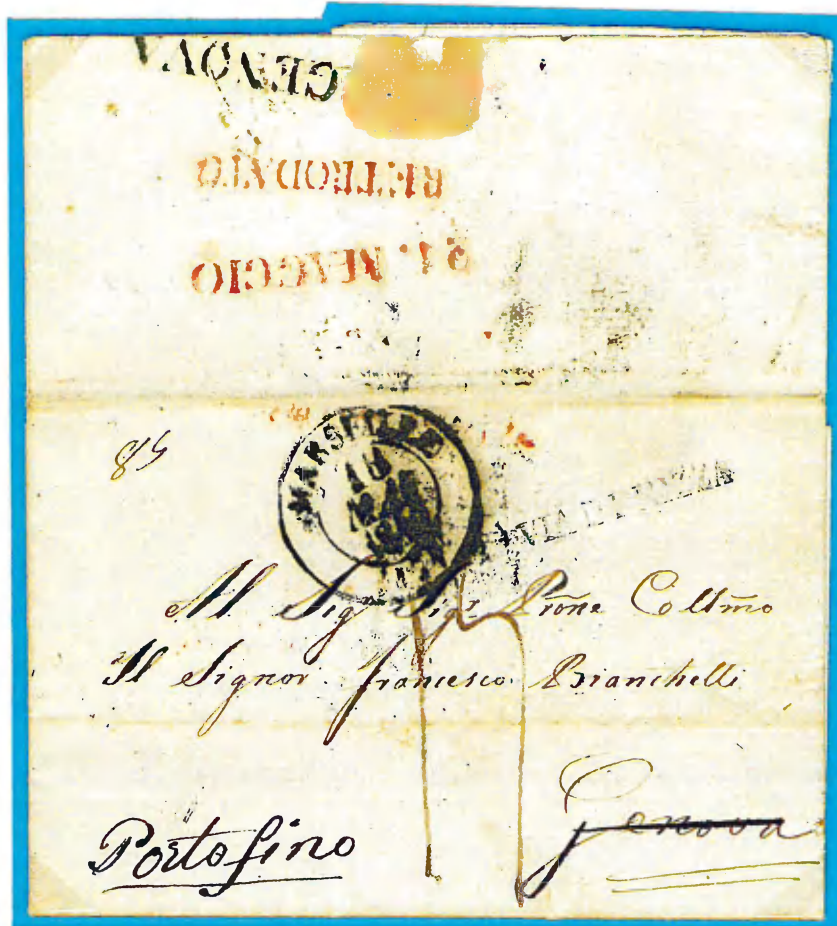 GENOVA
RETRODATO
21. MAGGIO
MARSEILLE
VIA DI NIZZA
Al Sig Sigr Prone Collmo
Il Signor Francesco Bianchelli
Genova
Portofino